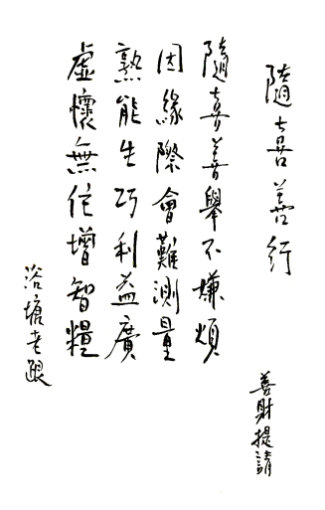 隨喜善行
善財提請
隨喜善舉不嫌煩
因緣際會難測量
熟能生巧利益廣
虛懷無住增智糧
浴塘老跟